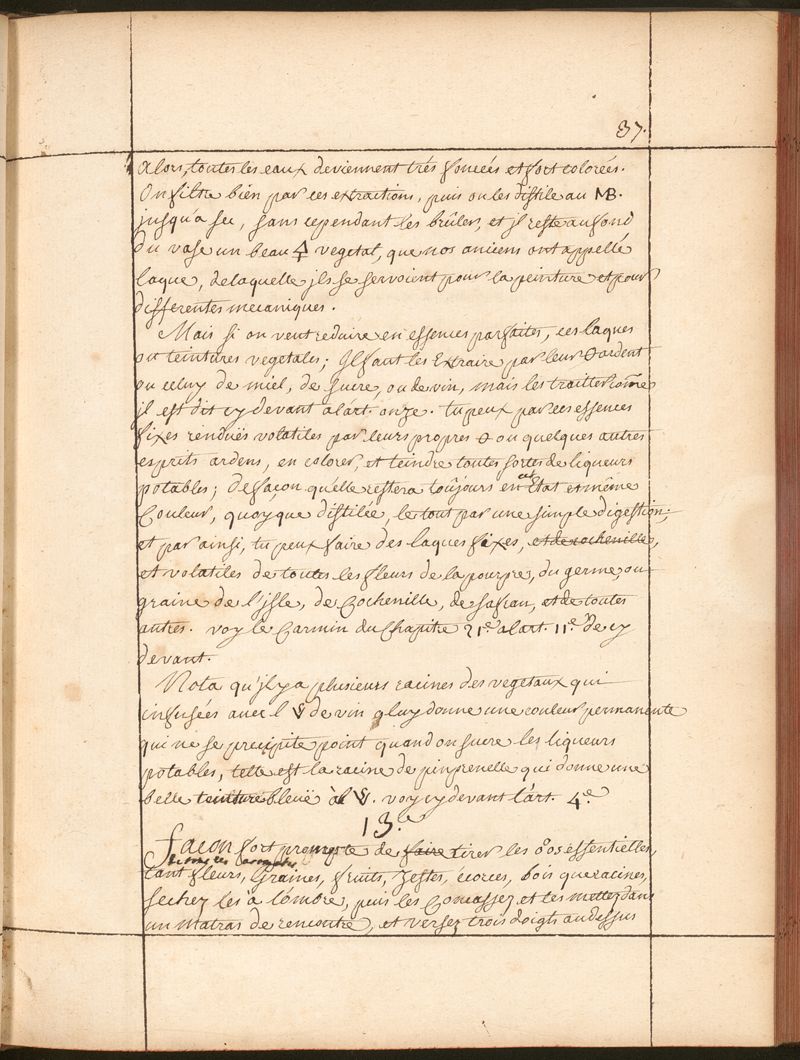 37.
Alors, toutes les eaux deviennent trés foncées et fort colorées.
On filtre bien par ces extractions, puis on les distile au MB.
jusqu'a sec, sans cependant les brûler, et jl reste au fond
du vase un beau 🜃 vegetal, que nos anciens ont appellé
laque, de laquelle jls se servoient pour la peinture et pour
differentes mecaniques.
Mais si on veut reduire en essences parfaites, ces laques
ou teintures vegetales; Jl faut les Extraire par leur ardent
ou celuy de miel, de sucre, ou de vin, mais les traitter com̄e
jl est dit cy devant a l'art. onze. tu peux par ces essences
fixes renduës volatiles par leurs propres ou quelques autres
esprits ardens, en colorer, et teindre toutes sortes de liqueurs
potables; de façon qu'elle restera toûjours en cet Etat et même
Couleur, quoyque distilée, le tout par une simple digestion;
et par ainsi, tu peux faire des laques fixes, et de cochenille,
et volatiles de toutes les fleurs de la pourpre, du germe, ou
graine de l'jsle, de Cochenille, de safran, et de toutes
autres. voy le Carmin du Chapitre 21e. a l'art. 11e. de cy
devant.
Nota qu'jl y a plusieurs racines des vegetaux qui
infusées avec l' de vin luy donne une couleur permanente
qui ne se precipite point quand on sucre les liqueurs
potables, telle est la racine de pinprenelle qui donne une
belle teinture bleuë à l' . voy cy devant l'art. 4.e
13.e
Façon fort prompte de faire tirer les essentielles,
tant fleurs, Graines, fruits, Zestes, écorces, bois que racines,
sechez les à l'ombre, puis les Concassez et les mettez dans
un Matras de rencontre, et versez trois doigts au dessus